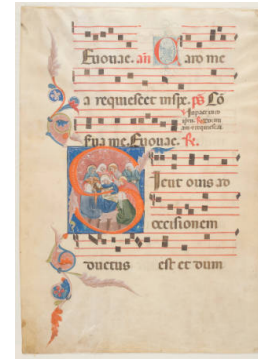 Evovae. añ Caro me
a requiescet inspe. ps Cō
serva me. Evovae. R.
Sicut ovis ad
occisionem
ductus est et dum